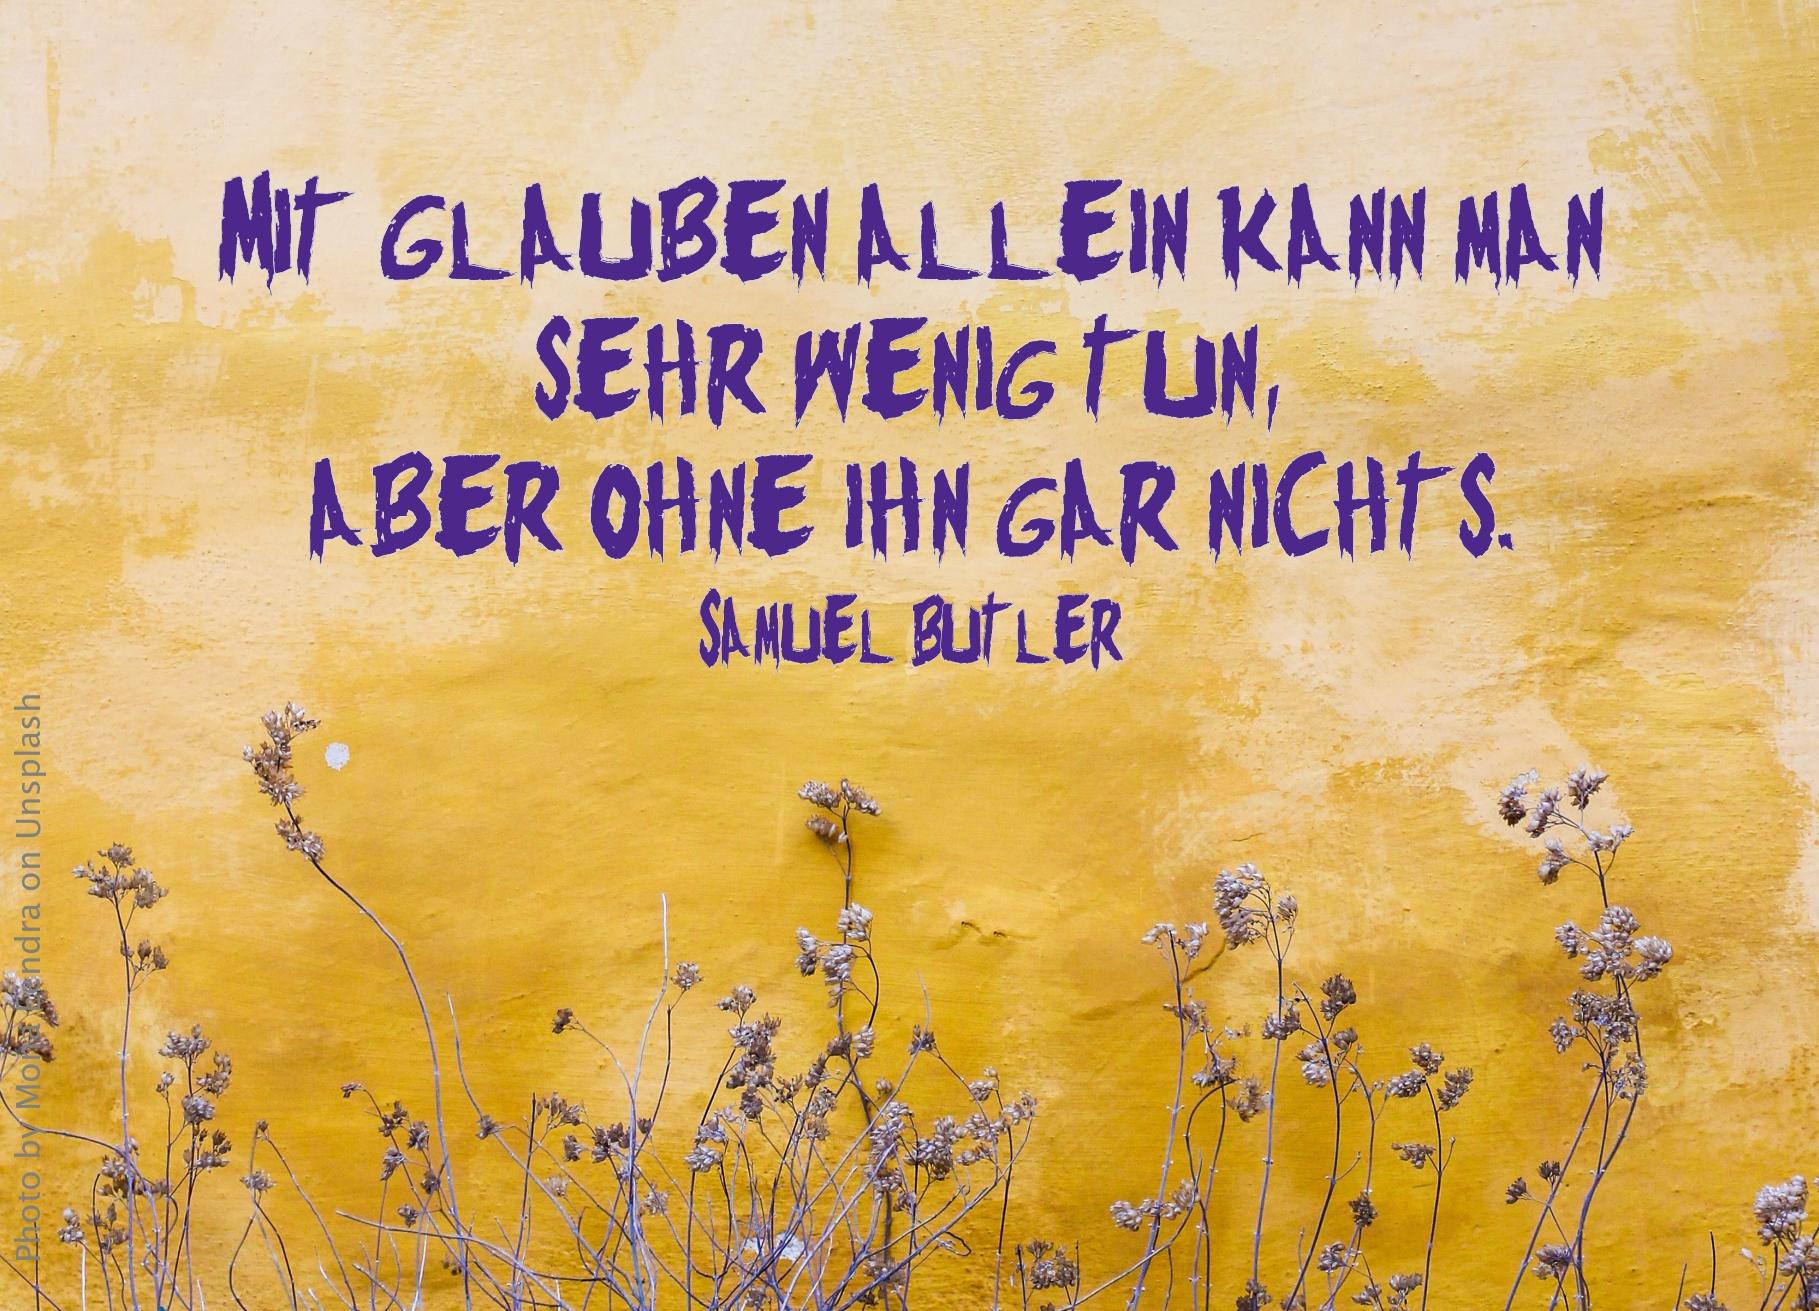 MIT GLAUBEN ALLEIN KANN MAN
SEHR WENIG TUN,
ABER OHNE IHN GAR NICHTS.
SAMUEL BUTLER
Photo by Mona Eendra on Unsplash